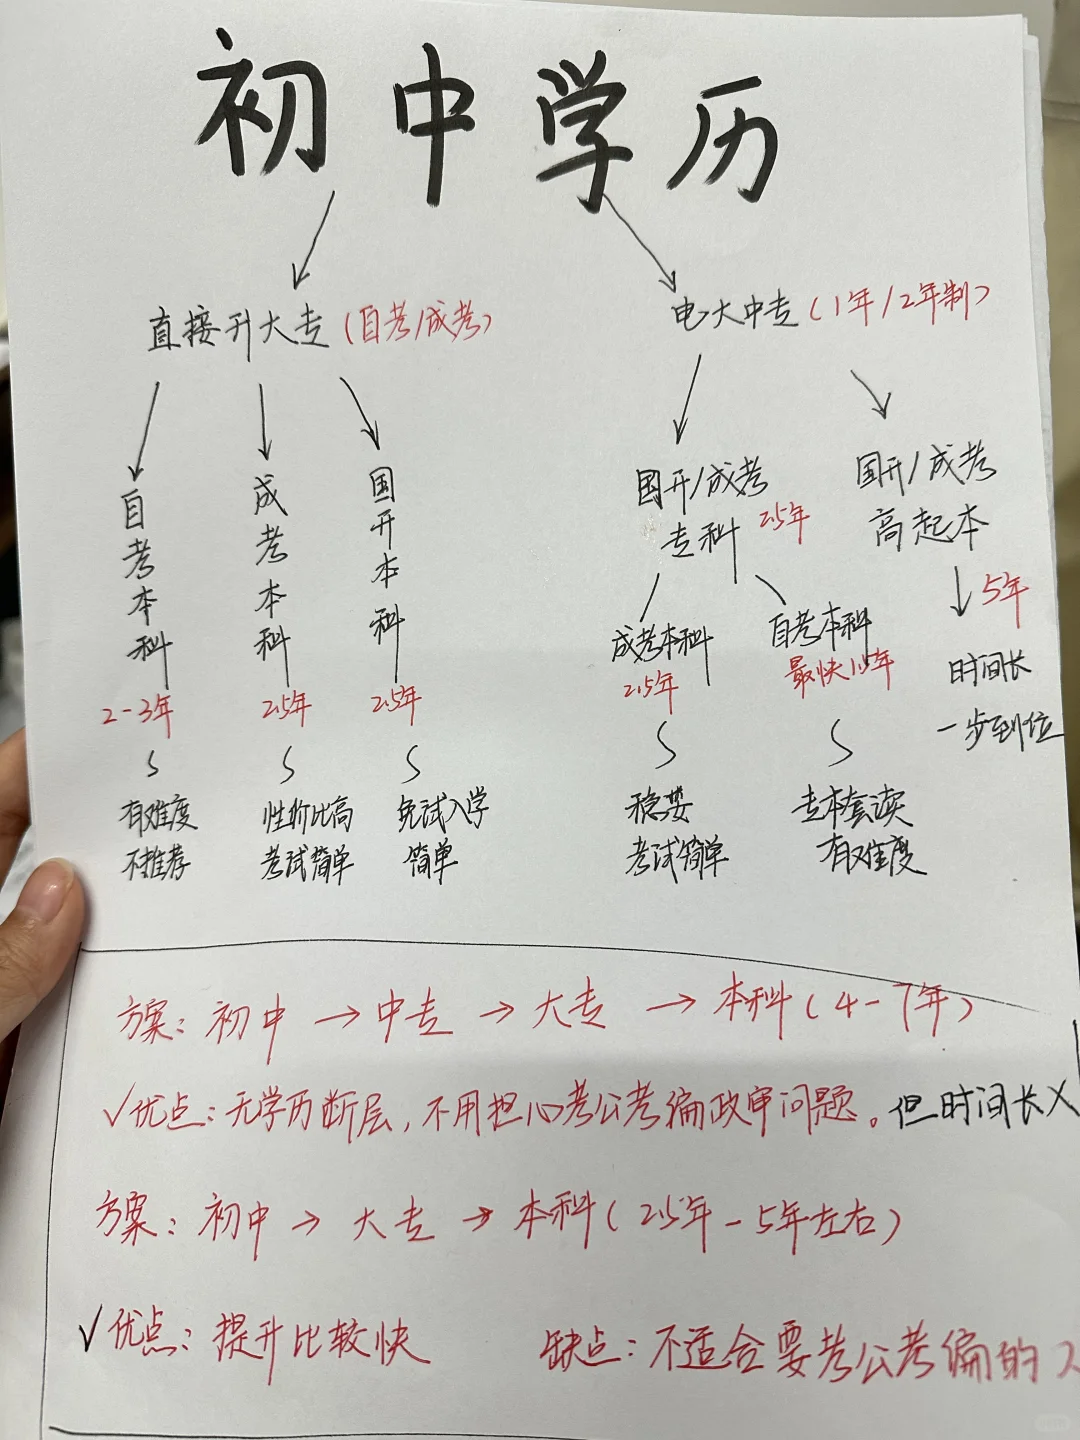 初中学历
直接升大专(自考/成考)
电大中专(1年/2年制)
自考本科
2-3年
有难度
不推荐
成考本科
2.5年
性价比高
考试简单
国开本科
2.5年
免试入学
简单
国开/成考
专科 2.5年
成考本科
2.5年
稳妥
考试简单
自考本科
最快1.5年
专本套读
有难度
国开/成考
高起本
5年
时间长
一步到位
方案:初中→中专→大专→本科(4-7年)
√优点:无学历断层,不用担心考公考编政审问题。但时间长X
方案:初中→大专→本科(2.5年-5年左右)
√优点:提升比较快 缺点:不适合要考公考编的人